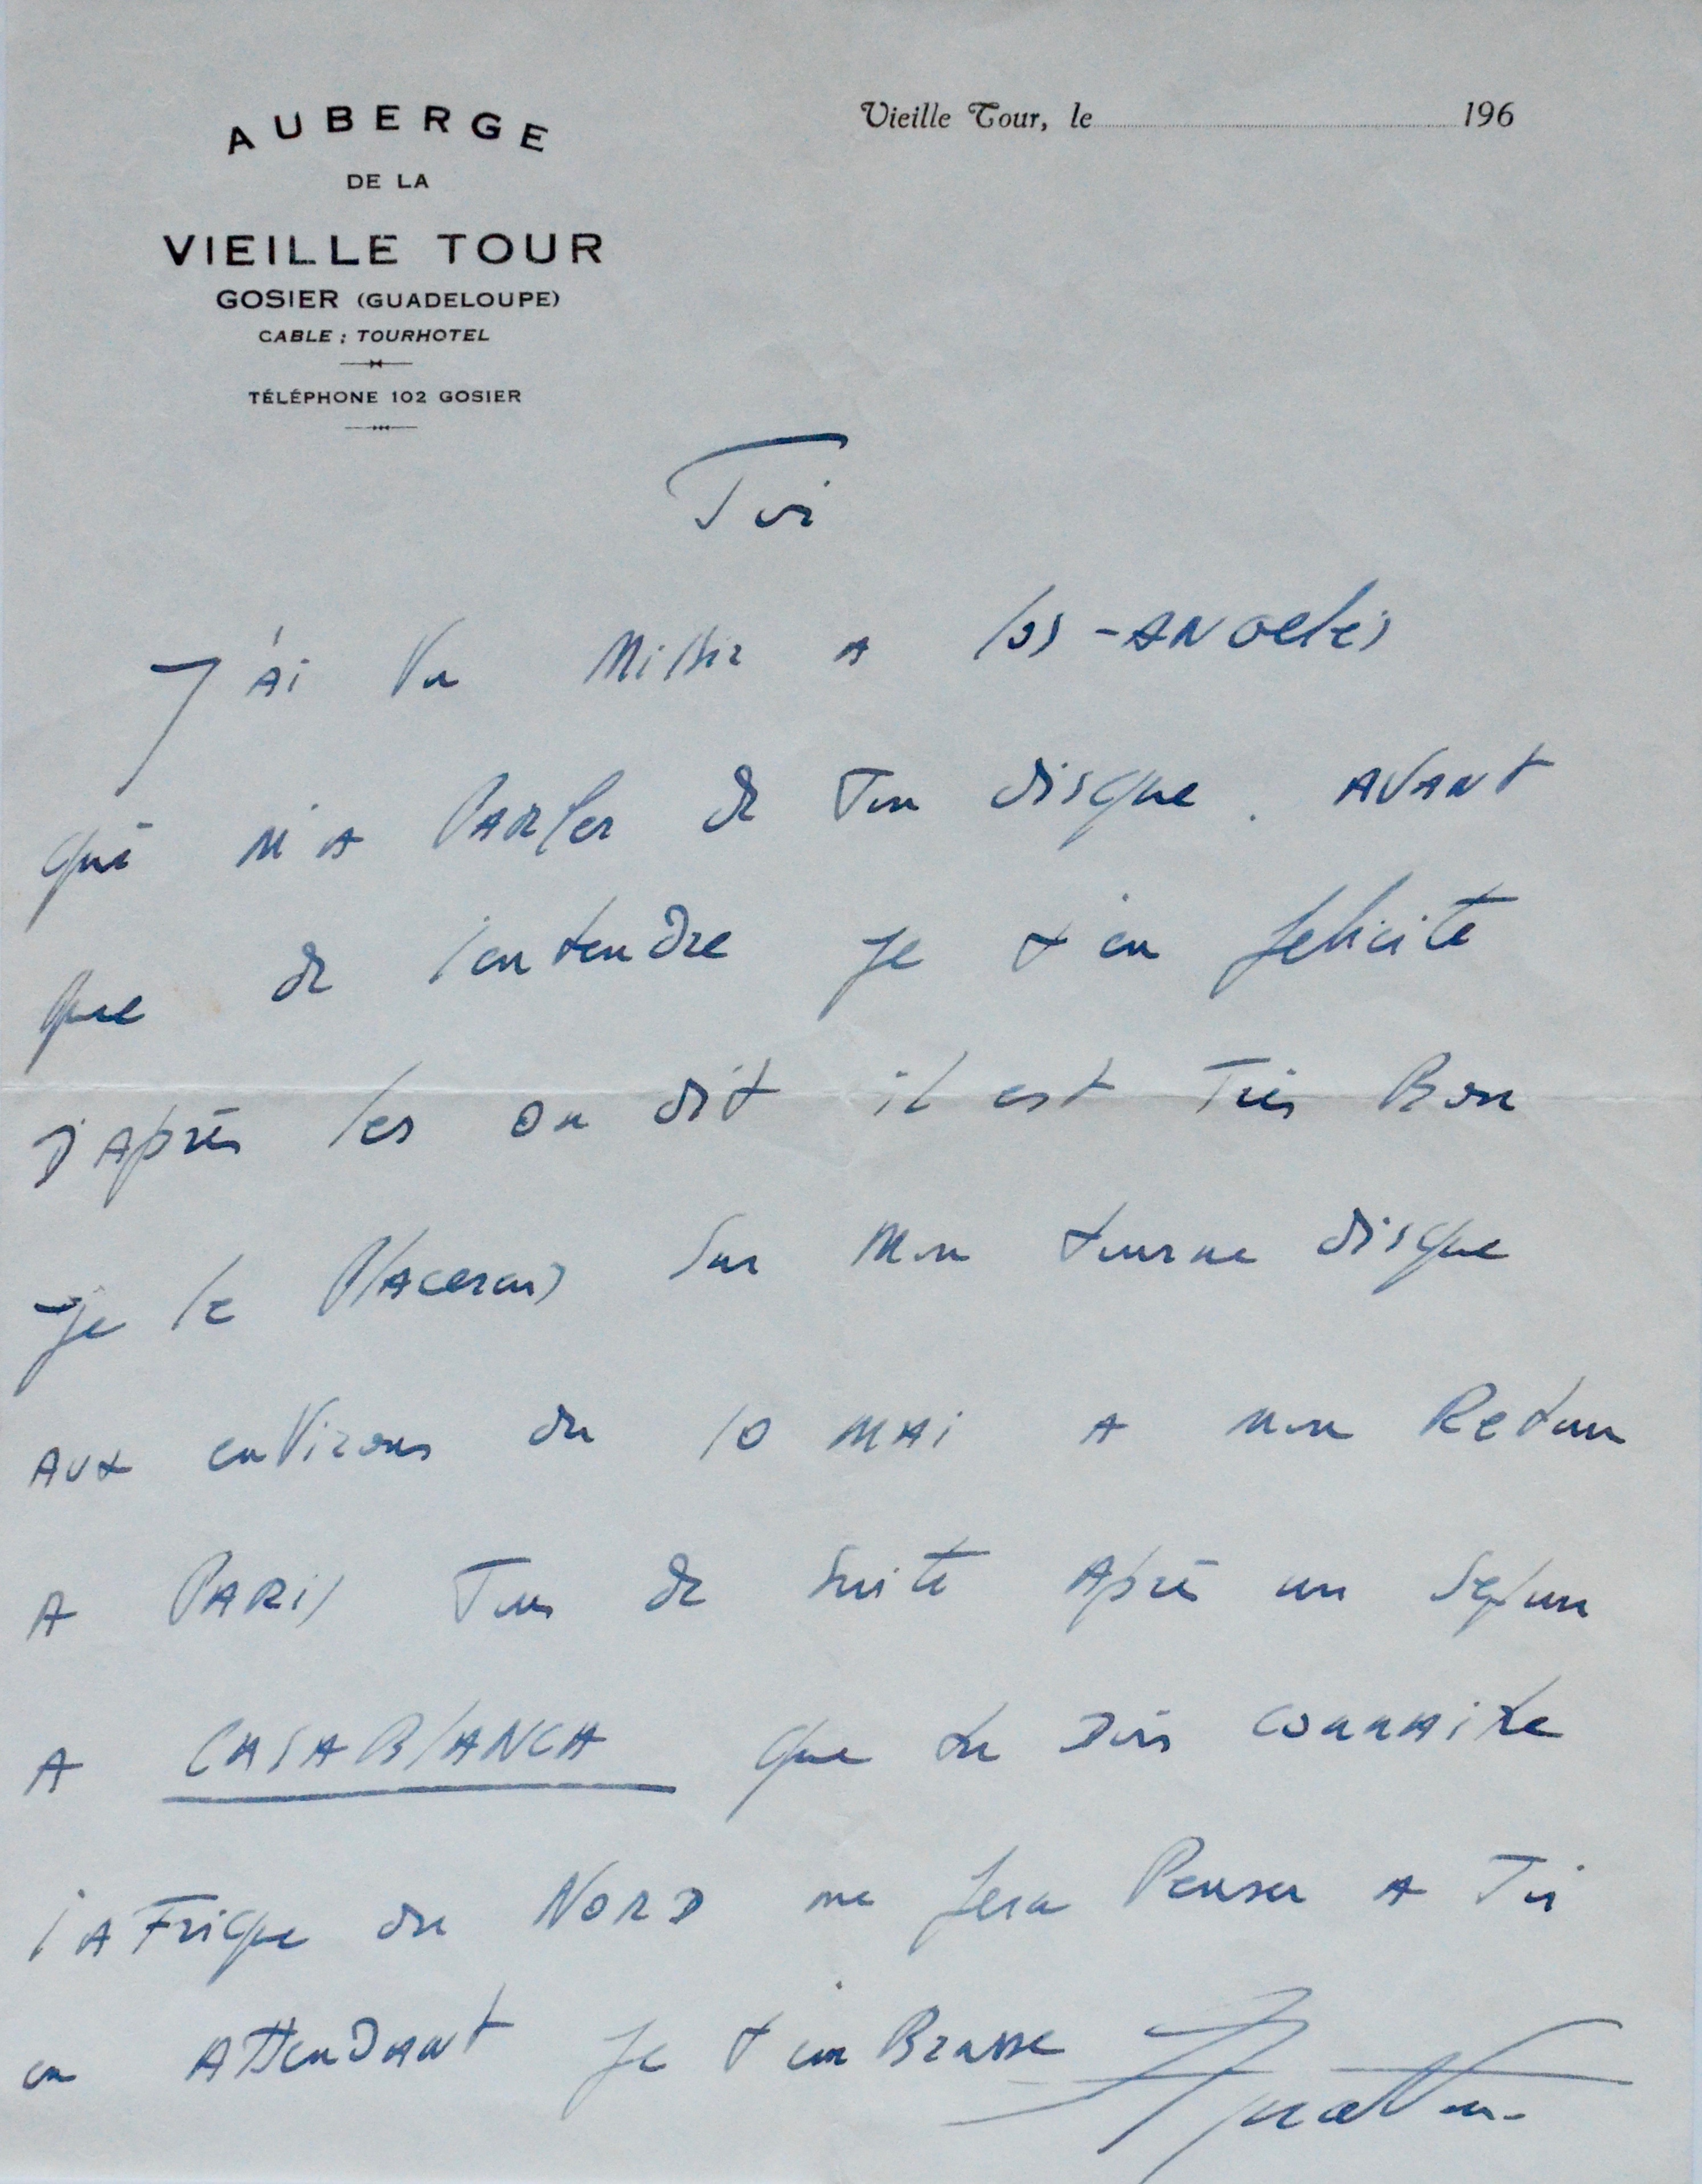 AUBERGE
DE LA
VIEILLE TOUR
GOSIER (GUADELOUPE)
CABLE : TOURHOTEL
TÉLÉPHONE 102 GOSIER
Vieille Tour, le 196
Toi
J'ai Vu a los-ANGeles
qui M'A PARler de Ton disque. AVANT
que de l'entendre je t'en felicite
D'Après les on dit il est Très Bon
je le Placerais sur Mon tourne disque
AUX enVirons du 10 MAi A mon Retour
A PARiS Tous de suite Après un Sejour
A CASABlANCA que tu Dois connaitre
l'AFrique du NORD me fera Penser A Toi
en ATTenDant je t'emBrasse